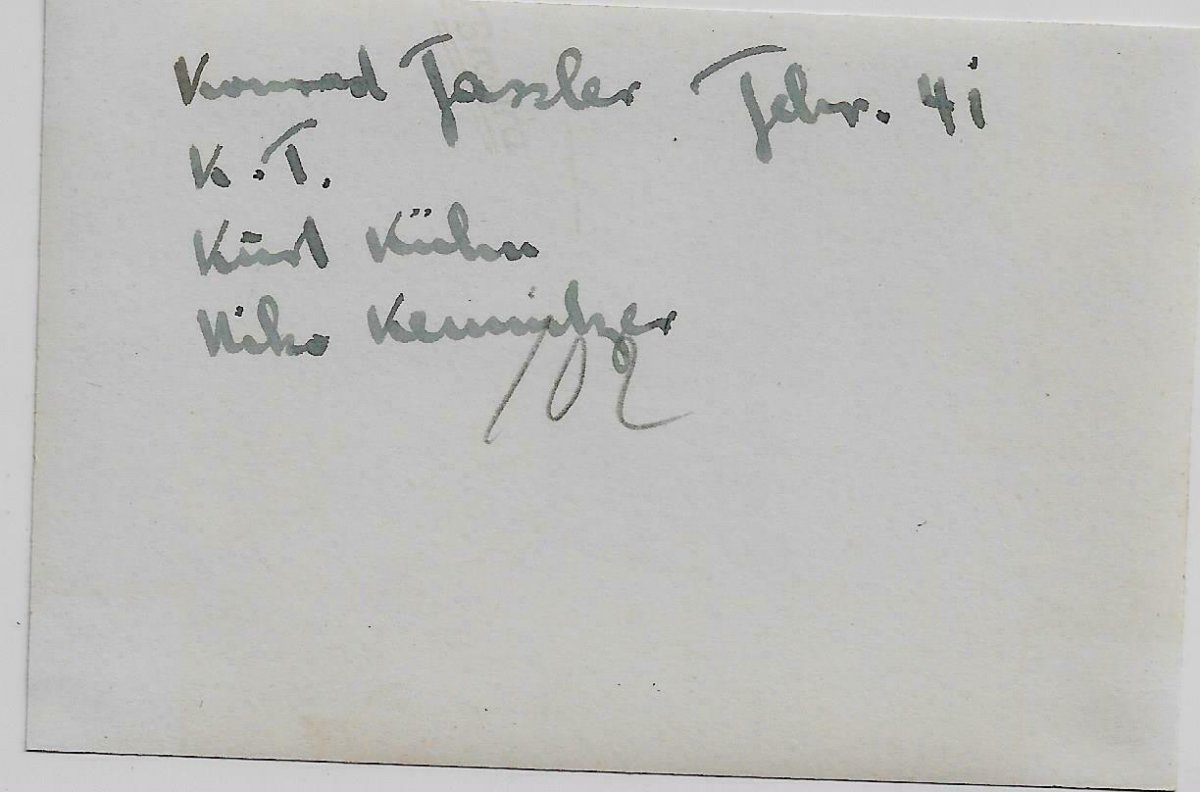 Konrad Fassler Febr. 41
K. T.
Kurt Kühn
Niko Kemnitzer
102